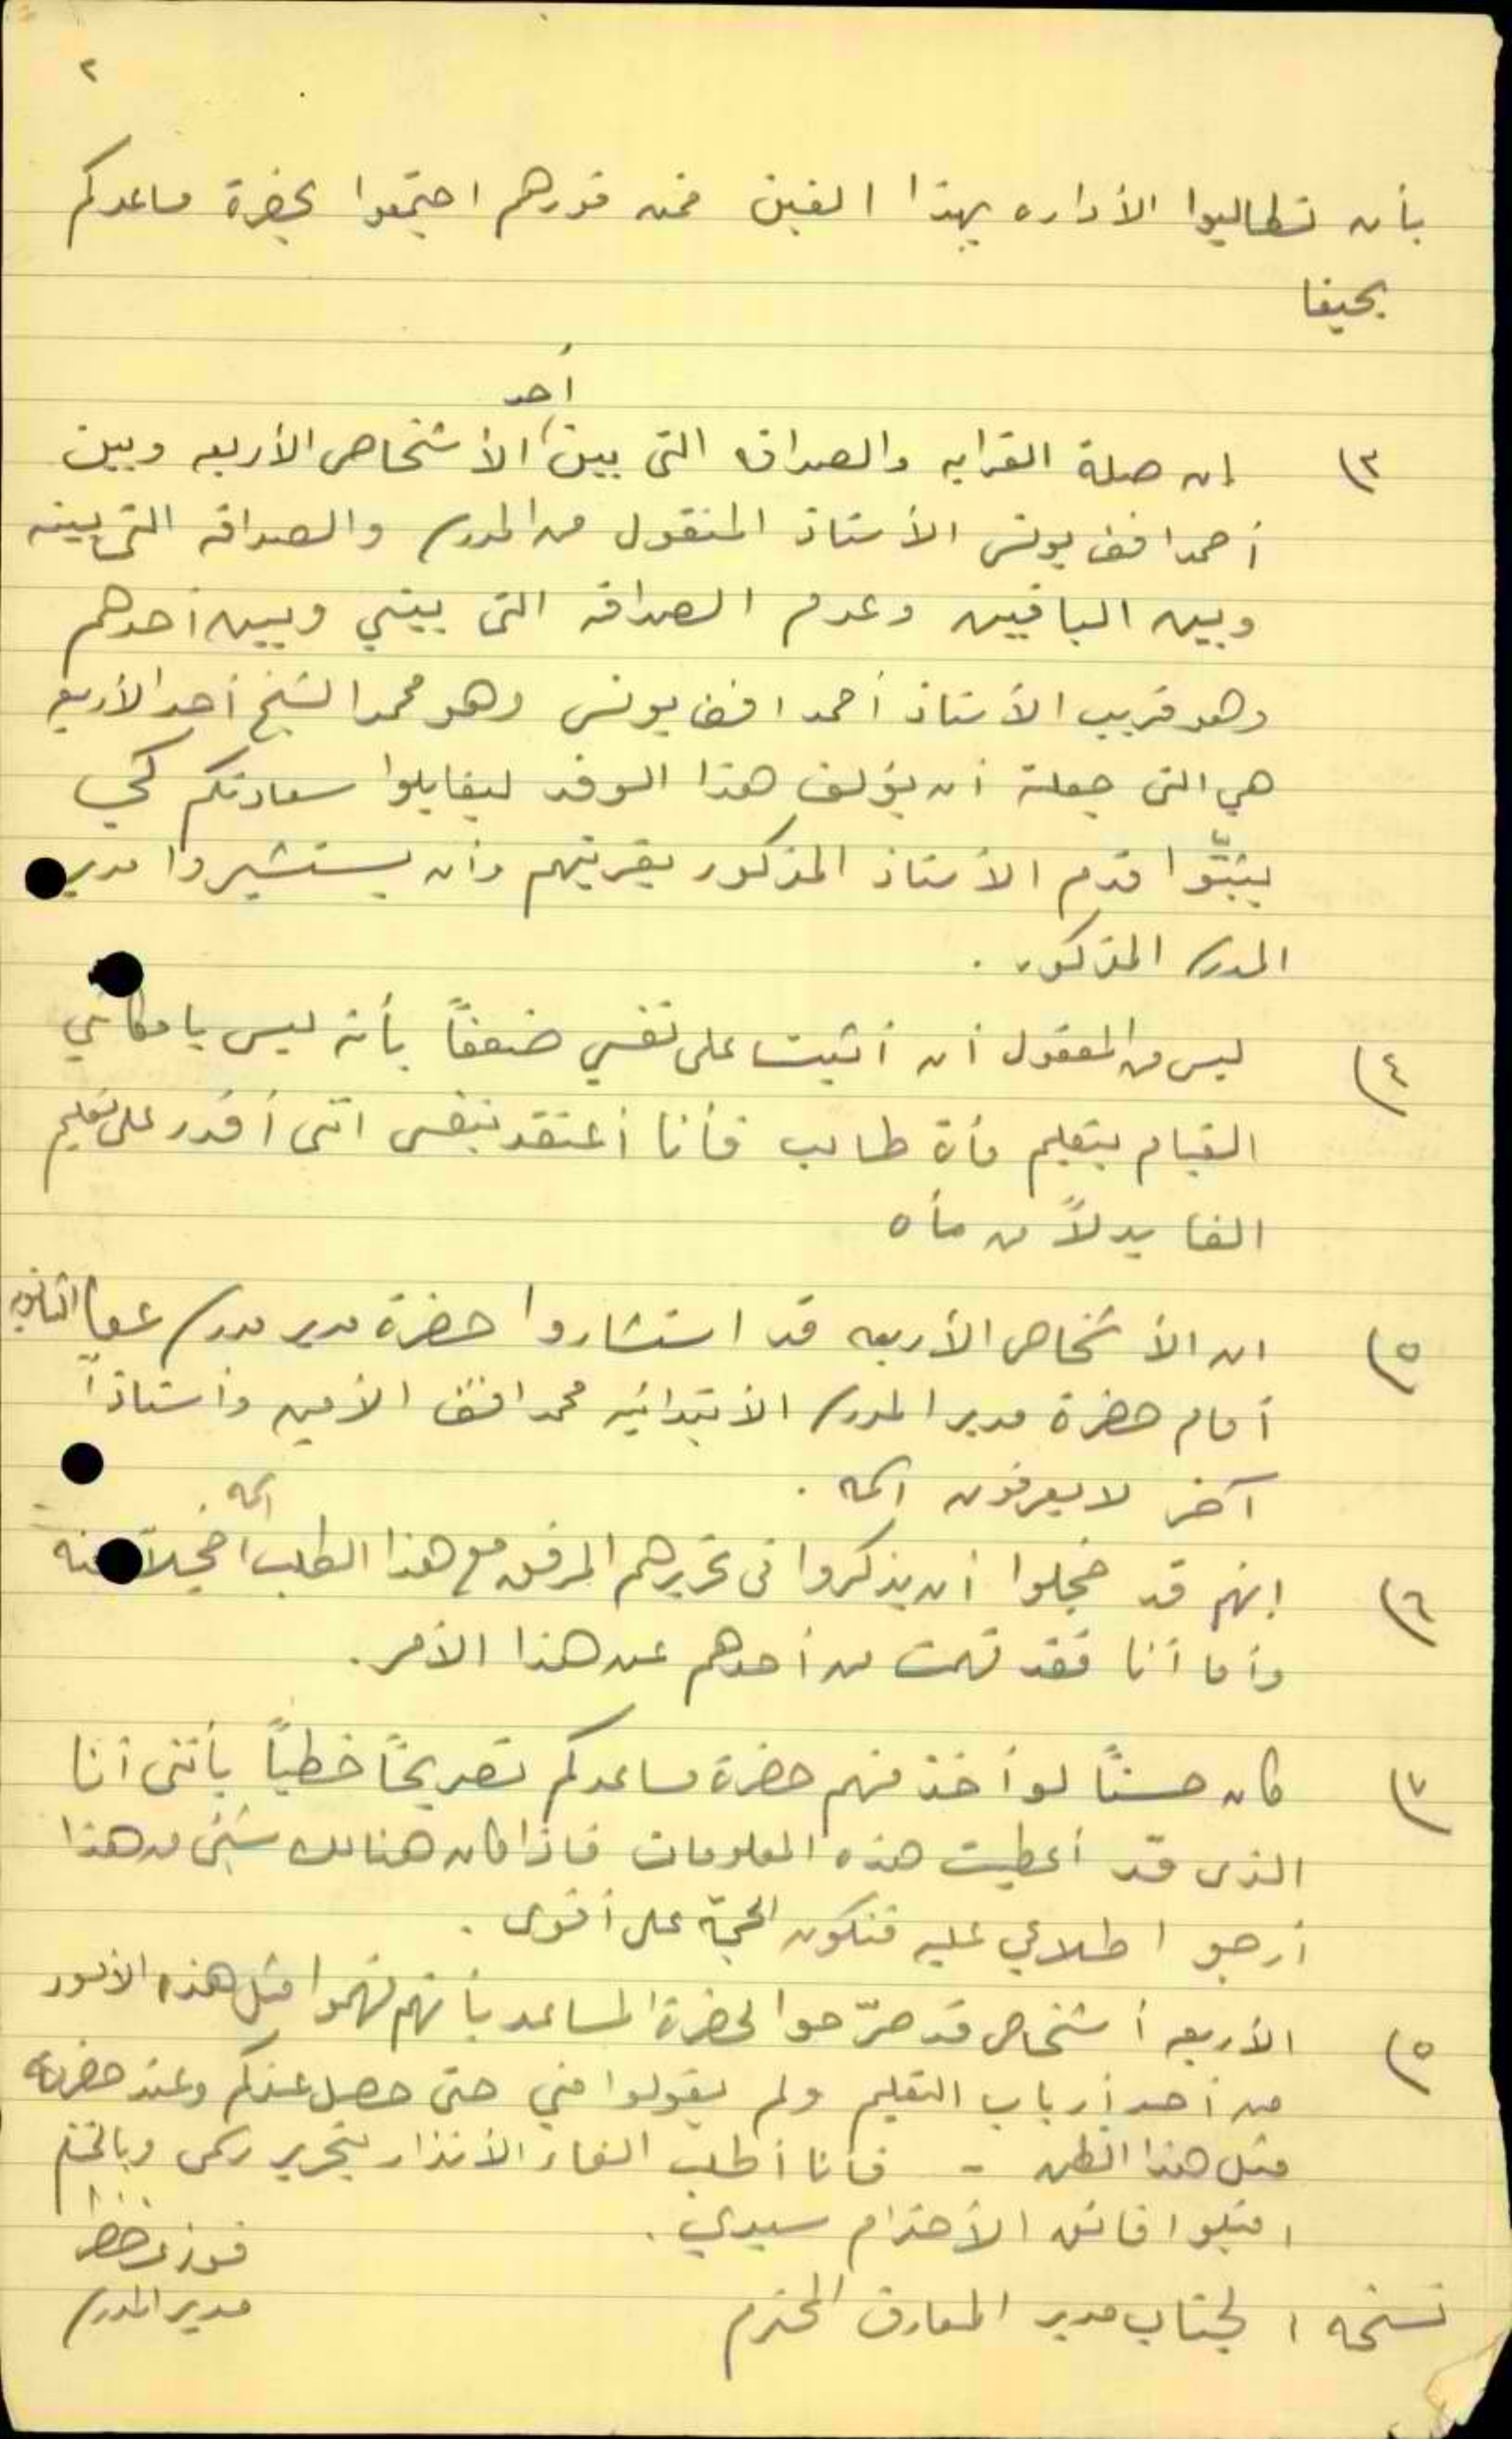 ٢
بأن تطالبوا الأداره بهذا الغبن فمن فورهم اجتمعوا بحضرة مساعدكم
بحيفا
أحد
٣) إن صلة القرابه والصداقه التى بين الأشخاص الأربعه وبين
أحمد افندى يونس الأستاذ المنقول من المدرسة والصداقه التى بينه
وبين الباقيين وعدم الصداقه التى بيني وبين أحدهم
وهو قريب الأستاذ أحمد افندى يونس وهو محمد الشيخ أحد الأربعه
هي التى جعلت أن يؤلف هذا الوفد ليقابلوا سعادتكم كي
يثبّتوا قدم الأستاذ المذكور بقريتهم وأن يستشيروا مدير
المدرسة المذكور .
٤) ليس من المعقول أن أثبت على نفسي ضعفاً بأنه ليس بامكاني
القيام بتعليم مأة طالب فأنا أعتقد بنفسى اننى أقدر على تعليم
الفا بدلاً من مأه
٥) ان الأشخاص الأربعه قد استشاروا حضرة مدير مدرسة عكا الثانويه
أمام حضرة مدير المدرسة الأبتدائيه محمد افندى الأمين وأستاذاً
آخر لا يعرفون اسمه .
اسمه
٦) انهم قد خجلوا أن يذكروا فى تحريرهم المرفق مع هذا الطلب خجلاً منه
وأما أنا فقد فهمت من أحدهم عن هذا الأمر .
٧) كان حسناً لو أخذ منهم حضرة مساعدكم تصريحاً خطياً بأننى أنا
الذى قد أعطيت هذه المعلومات فاذا كان هنالك شيئ من هذا
أرجو اطلاعي عليه فتكون الحجة على أقوى .
٥) الأربعه أشخاص قد صرّحوا لحضرة المساعد بأنهم فهموا مثل هذه الأمور
من أحد أرباب التعليم ولم يقولوا مني حتى حصل عندكم وعند حضرته
مثل هذا الظن - فأنا أطلب الغاء الأنذار بتحرير رسمى وبالختام
اقبلوا فائق الأحترام سيدي .
مدير المدرسة
نسخه : لجناب مدير المعارف المحترم